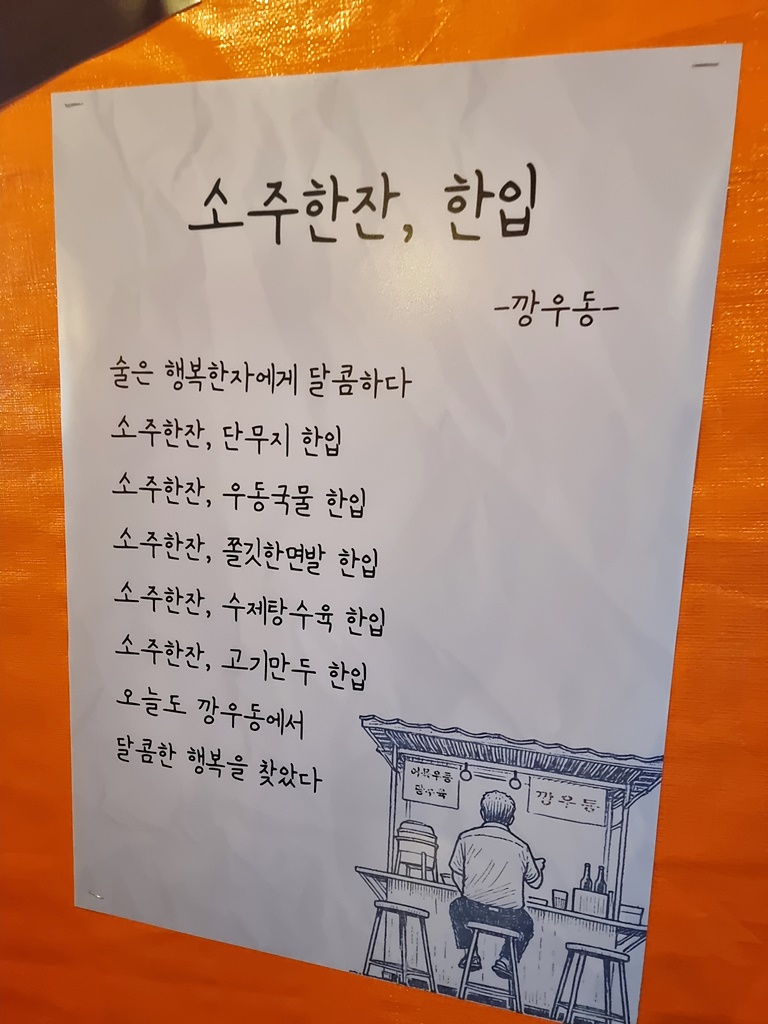 소주한잔, 한입
-깡우동-
술은 행복한자에게 달콤하다
소주한잔, 단무지 한입
소주한잔, 우동국물 한입
소주한잔, 쫄깃한면발 한입
소주한잔, 수제탕수육 한입
소주한잔, 고기만두 한입
오늘도 깡우동에서
달콤한 행복을 찾았다
깡우동